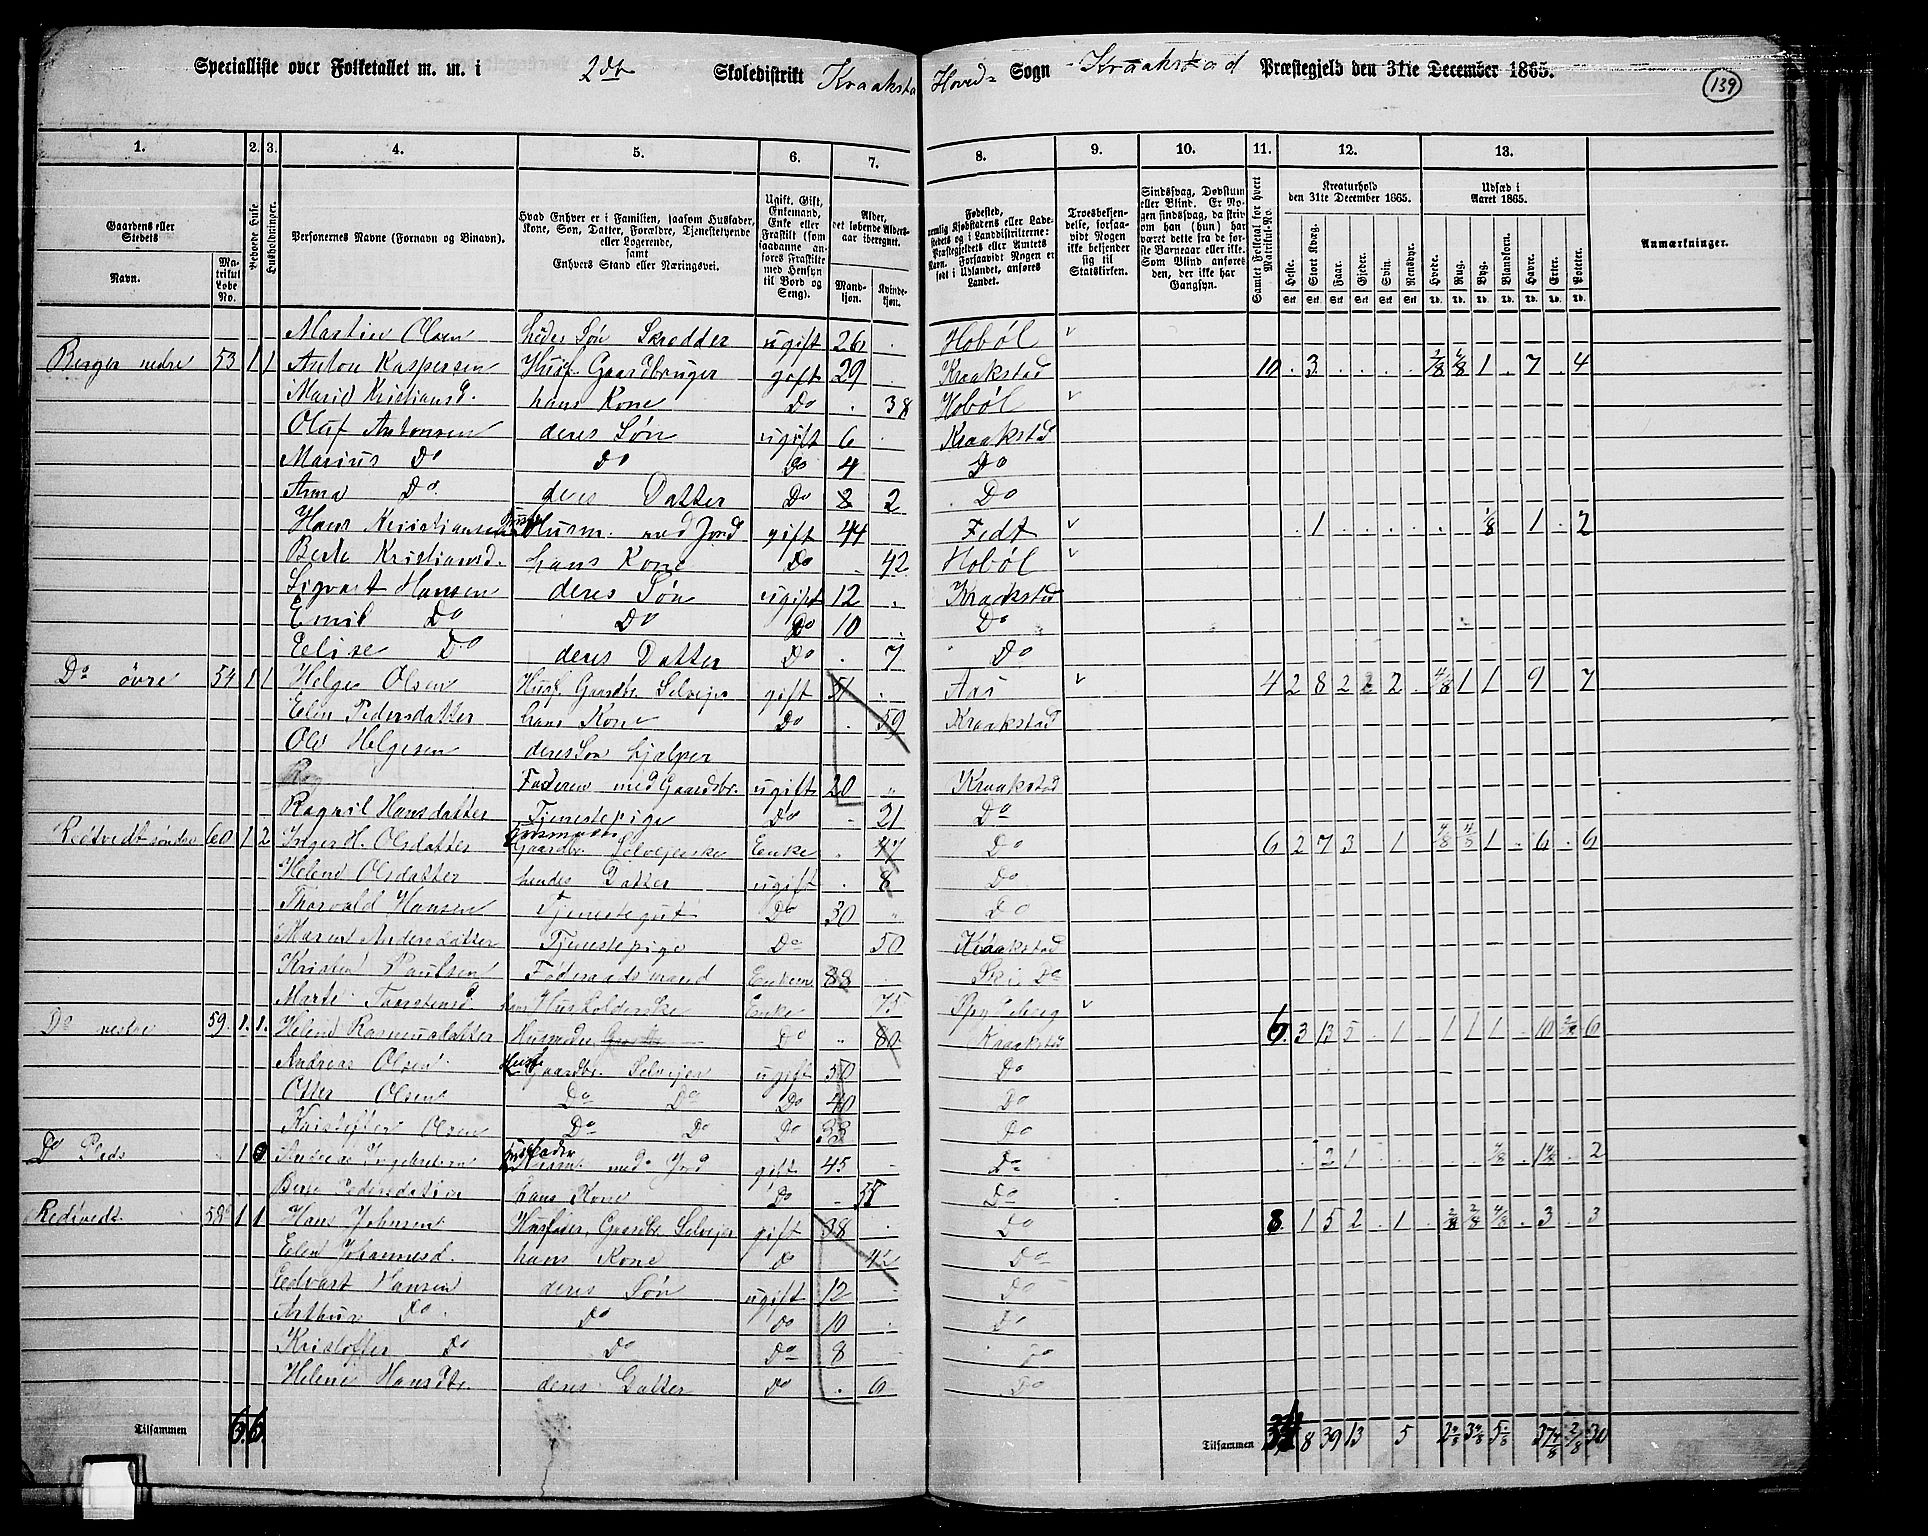 Specialliste over Folketallet m. m. i 2det Skoledistrikt Kraakstad Hoved- Sogn Kraakstad Præstegjeld den 31te December 1865.
139
1. 2. 3. 4. 5. 6. 7. 8. 9. 10. 11. 12. 13.
Gaardens eller Stedets
Navn. Matrikul Løbe No.
Beboede Huse.
Husholdninger.
Personernes Navne (Fornavn og Binavn).
Hvad Enhver er i Familien, saasom Husfader, Kone, Søn, Datter, Forældre, Tjenestetyende eller Logerende, samt Enhvers Stand eller Næringsvei.
Ugift, Gift, Enkemand, Enke eller Fraskilt (som saadanne anføres Fraskilte med Hensyn til Bord og Seng).
Alder, det løbende Aldersaar iberegnet.
Mandkjøn. Kvindekjøn.
Fødested,
Troesbekjendelse, forsaavidt Nogen ikke bekjender sig til Statskirken.
Sindssvag, Døvstum eller Blind.
Samlet Folketal for hvert Matrikul-No.
Kreaturhold den 31te December 1865.
Heste. Stort Kvæg. Faar. Gjeder. Svin. Rensdyr.
Udsæd i Aaret 1865.
Hvede. Rug. Byg. Blandkorn. Havre. Erter. Poteter.
Anmærkninger.
Martin Olsen hendes Søn Skredder ugift 26 Hobøl
Berger nedre 53 1 1 Anton Kaspersen Husf. Gaardbruger gift 29 Kraakstad 10 3 2/8 1 7 4
Marie Kristiansd. hans Kone Do 38 Hobøl
Oluf Antonsen deres Søn ugift 6 Kraakstad
Marius Do Do Do 4 Do
Anna Do deres Datter Do 2 Do
Hans Kristiansen Husm. med Jord gift 44 Fedt 1 1/8 1 2
Berte Kristiansd. hans Kone Do 42 Hobøl
Sigvart Hansen deres Søn ugift 12 Kraakstad
Emil Do Do Do 10 Do
Elise Do deres Datter Do 7 Do
Do øvre 54 1 1 Helge Olsen Husf. Gaardbr. Selvejer gift 51 Aas 4 2 8 2 2 4/8 1 1 9 7
Elen Pedersdatter hans Kone Do 59 Kraakstad
Ole Helgesen deres Søn hjælper
Faderen med Gaardsbr. ugift 20 Kraakstad
Ragnil Hansdatter Tjenestepige Do 21 Do
Rødtvedt søndre 60 1 2 Inger H. Olsdatter Gaardbr. Selvejerske Enke 47 Do 6 2 7 3 1 4/8 4/8 1 6 6
Helene Olsdatter hendes Datter ugift 8 Do
Thorvald Hansen Tjenestegut Do 30 Do
Maren Andersdatter Tjenestepige Do 50 Kraakstad
Kristen Paulsen Føderaadsmand Enkem 88 Ski Do
Marte Taarstensd. hans Husholderske Enke 75 Spydeberg
Do nestre 59 1 1 Helene Rasmusdatter Husmoder Do 80 Kraakstad 6 3 13 5 1 1 1 1 10 2/8 6
Andreas Olsen Gaardbr. Selvejer ugift 50 Do
Otter Olsen Do Do Do 40 Do
Kristoffer Olsen Do Do Do 33 Do
Do Pads 1 Andreas Husfader Husm. med Jord gift 45 Do 2 1 2
Berte Pedersdatter hans Kone Do 58 Do
Rødtvedt 58 1 1 Hans Johnsen Husfader, Gaardbr. Selvejer gift 38 Do 8 1 5 2 1 2/8 2/8 4/8 3 3
Elen Johannesd. hans Kone do 42 Do
Edvart Hansen deres Søn ugift 12 Do
Arthur Do Do do 10 Do
Kristoffer Do Do Do 8 Do
Helene Hansdtr. deres Datter Do 6 Do
Tilsammen 6 6
Tilsammen 34 8 39 13 5 5 37 4/8 2/8 30